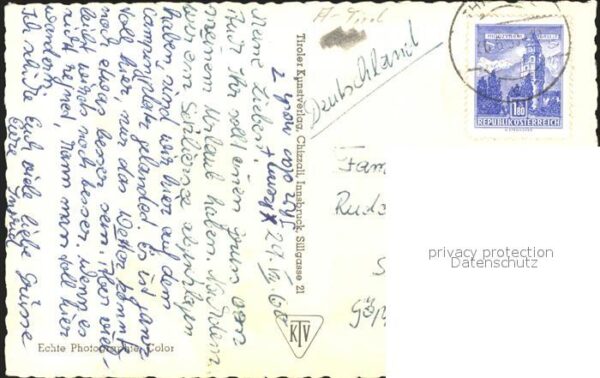 A-Tirol
Deutschland
REPUBLIK ÖSTERREICH
1.80
Tiroler Kunstverlag, Chizzali, Innsbruck, Sillgasse 21
KTV
Echte Photographie Color
29. 60
Meine Lieben!
Auch Ihr sollt einen Gruß von
meinem Urlaub haben. Nachdem
wir am
haben, sind wir hier auf dem
Campingplatz gelandet. Es ist ganz
toll hier, nur das Wetter könnte
noch etwas besser sein. Aber viel-
leicht wird's noch besser, wenn es
nicht regnet. Kann man toll hier
wandern.
Ich Euch viele liebe Grüsse
Eure
Ingrid
Fam
Rud
S
Göp
privacy protection
Datenschutz